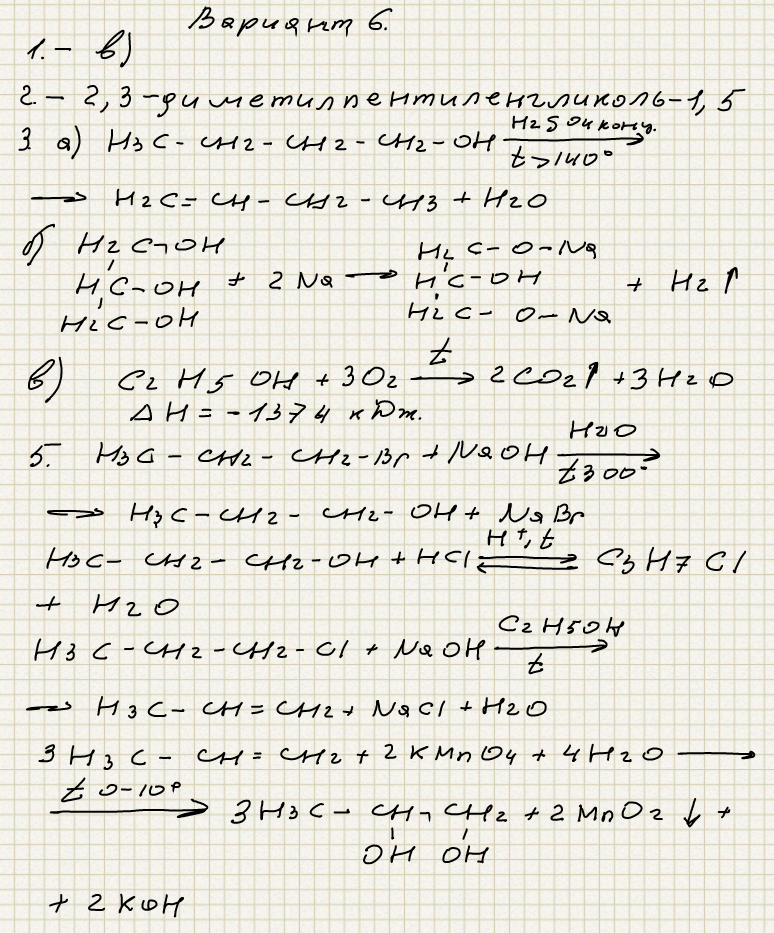 Вариант 6.
1. - в)
2. - 2,3-диметилпентиленгликоль-1,5
3. а) H3C - CH2 - CH2 - CH2 - OH H2SO4 конц. t>140° →
→ H2C = CH - CH2 - CH3 + H2O
б) H2C-OH H2C-O-Na
HC-OH + 2Na → HC-OH + H2↑
H2C-OH H2C-O-Na
в) C2H5OH + 3O2 t → 2CO2↑ + 3H2O
ΔH = -1374 кДж.
5. H3C - CH2 - CH2-Br + NaOH H2O t300° →
→ H3C - CH2 - CH2 - OH + NaBr
H3C - CH2 - CH2-OH + HCl H+, t ⇌ C3H7Cl
+ H2O
H3C - CH2 - CH2 - Cl + NaOH C2H5OH t →
→ H3C - CH = CH2 + NaCl + H2O
3H3C - CH = CH2 + 2KMnO4 + 4H2O →
t 0-10° → 3H3C - CH - CH2 + 2MnO2↓ +
OH OH
+ 2KOH